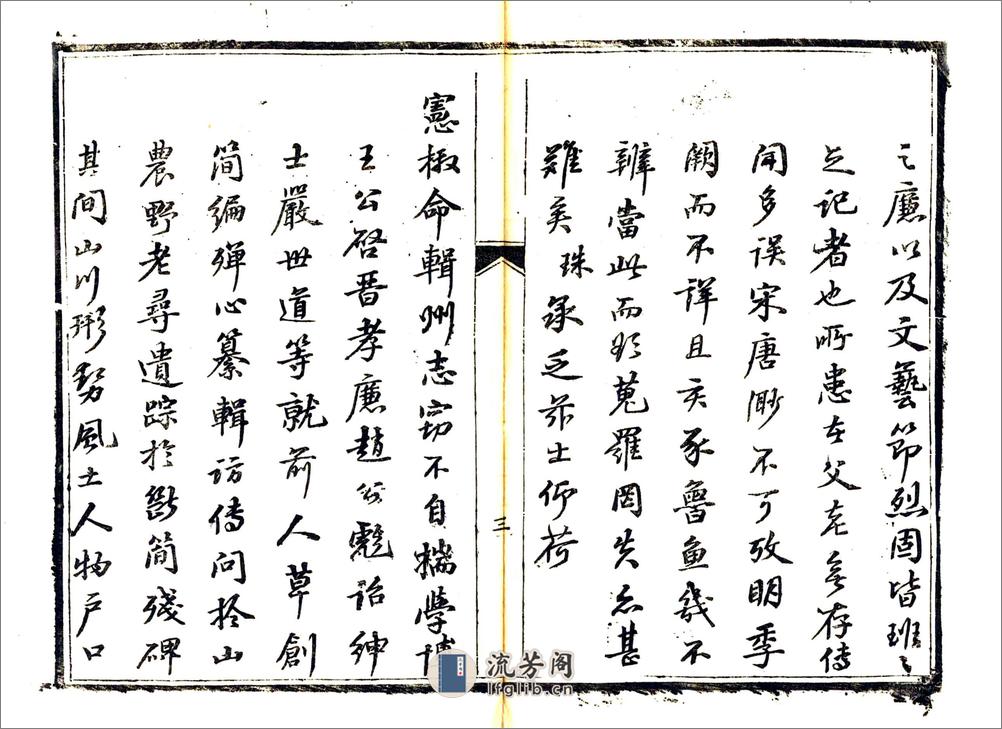 之廉以及文藝節烈固皆班班
之記者也所患在父老無存傳
聞多誤宋唐渺不可攷明季
闕而不詳且亥豕魯魚幾不
辨當此而欲蒐羅罔失忘甚
難矣珠承乏茲土仰荷
三
憲檄命輯州志窃不自揣學博
王公啓晋孝廉趙公
士嚴世道等就前人草創
简編殫心纂輯訪傳问於山
農野老尋遺踪於斷简殘碑
其间山川形勢風土人物戸口
流芳阁
lfglib.cn